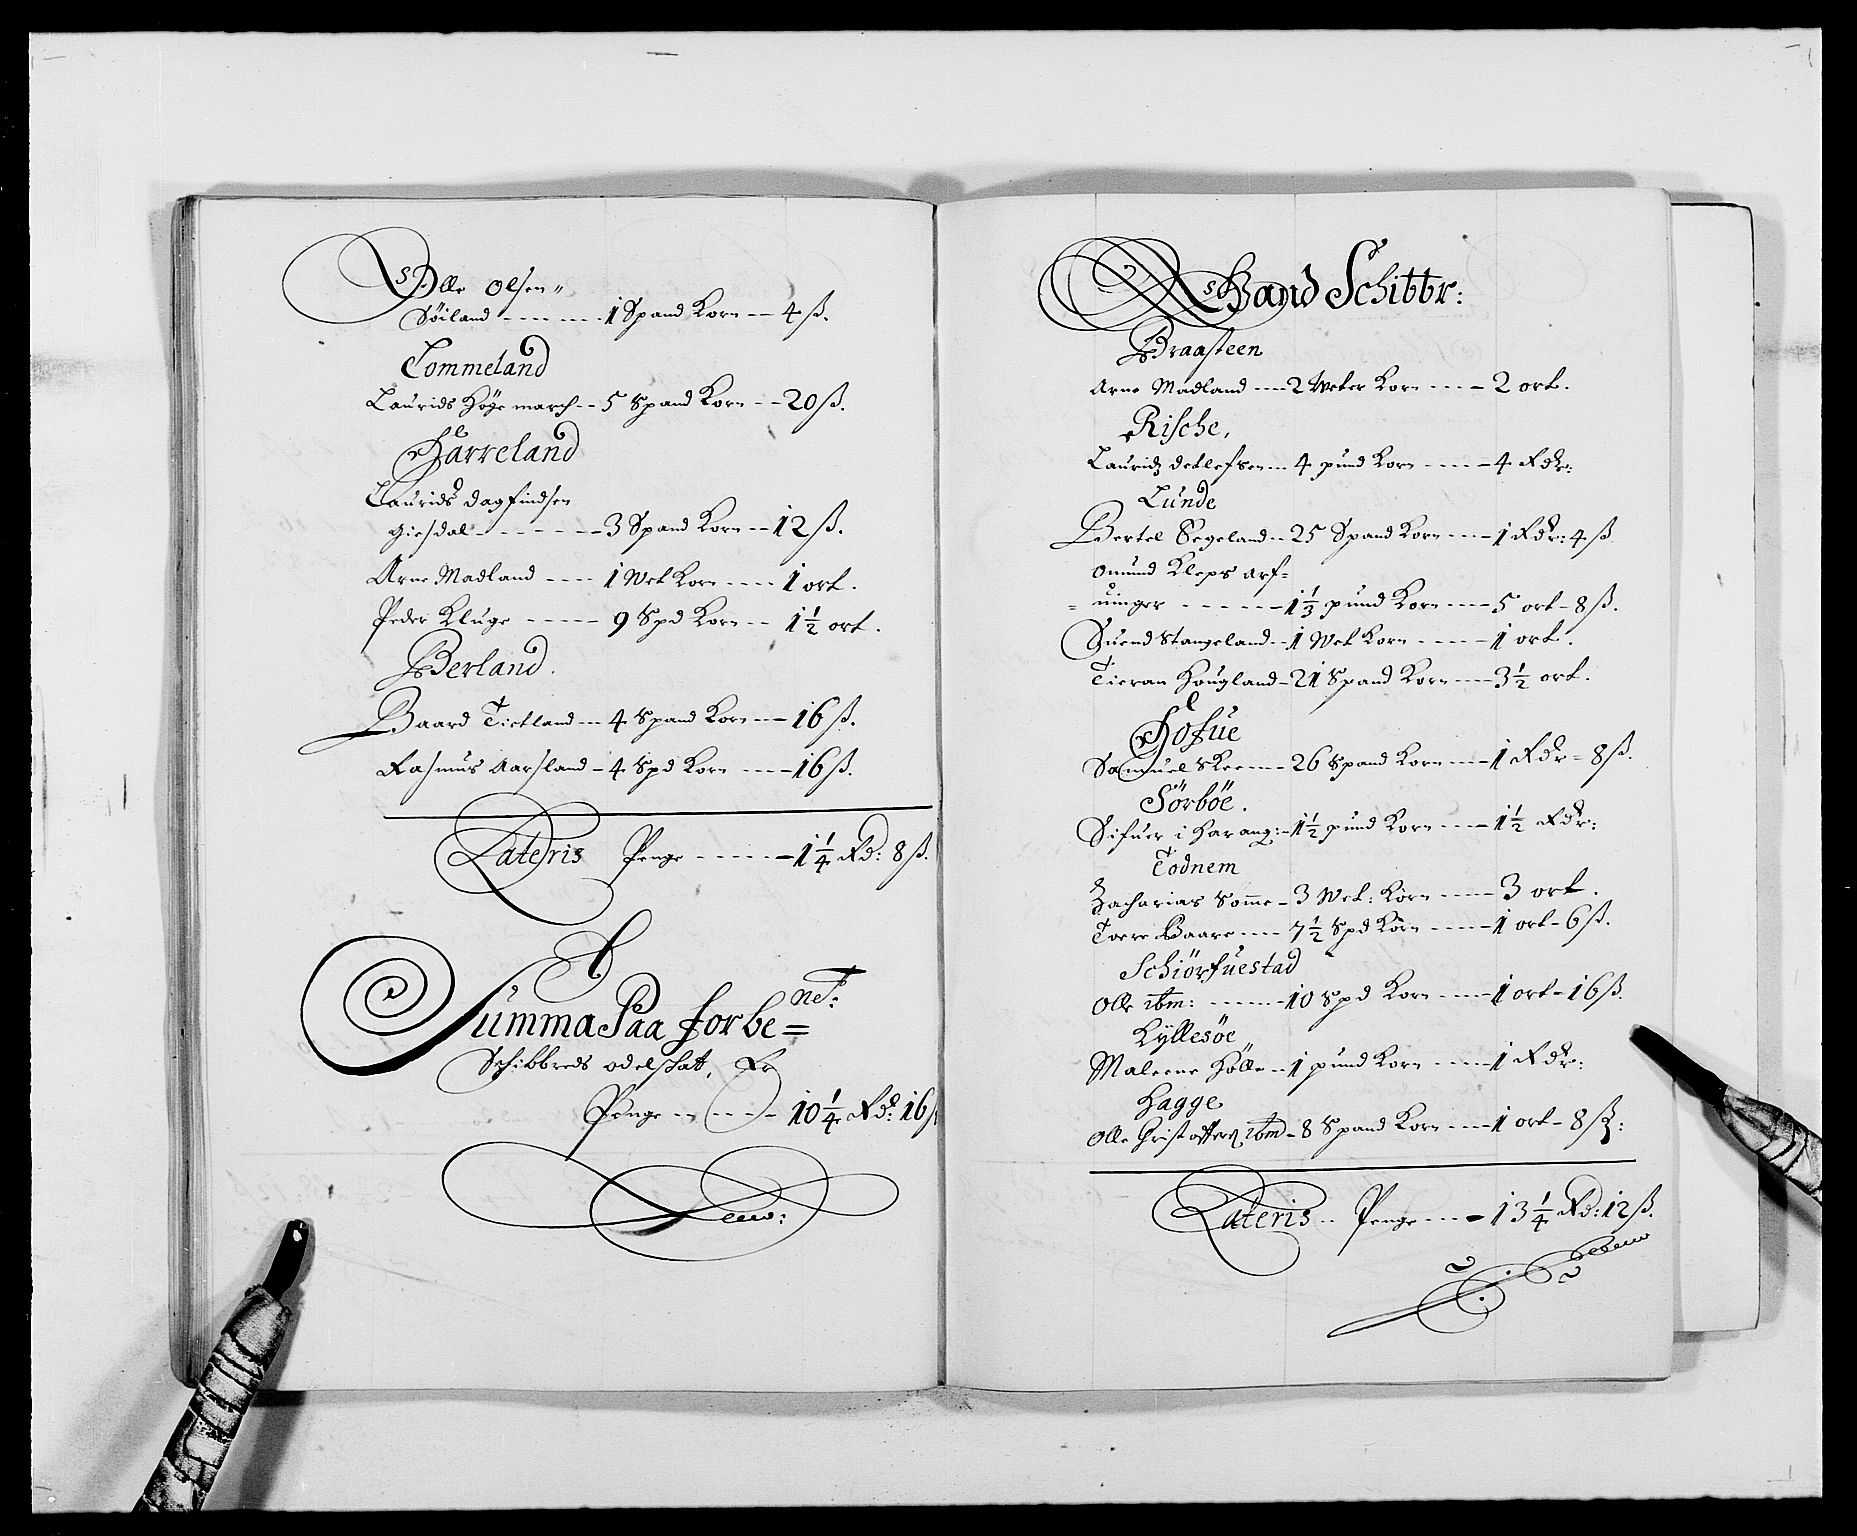 Olle Olsen
Söiland - - - - - - 1 Spand Korn - - 4 ß.
Tommeland
Laurids Höye march - - 5 Spand Korn - - 20 ß.
Harreland
Laurids dagfindsen
Giesdal - - - - - - 3 Spand Korn - - 12 ß.
Arne Madland - - - - 1 Wet Korn - - - - 1 ort.
Peder Kluge - - - - - 9 Spd Korn - - 1 1/2 ort.
Berland.
Baard Tietland - - - 4 Spand Korn - - - 16 ß.
Rasmus Aarsland - 4 Spd Korn - - - 16 ß.
Lateris Penge - - - - - - 1 1/4 Rd: 8 ß.
Summa Paa forbe=
net:
Schibbreds odelschat, Er
Penge - - - - - - 10 1/4 Rd: 16 ß
Hand Schibbr:
Braasteen
Arne Madland - - - 2 Weter Korn - - - - 2 ort.
Rische,
Lauridz detlefsen - - - 4 pund Korn - - - - - 4 Rdr:
Lunde
Bertel Segeland - - 25 Spand Korn - - - - 1 Rdr: 4 ß
Omund Kleps arf=
= uinger - - - - - - 1 1/3 pund Korn - - - - 5 ort - 8 ß.
Suend Stangeland - - 1 Wet Korn - - - - - 1 ort.
Tieran Hougland - 21 Spand Korn - - - - 3 1/2 ort.
Hofue
Samuel Skeen - - - 26 Spand Korn - - - - 1 Rdr - 8 ß.
Sörböe.
Sifuer i Harang: - 1 1/2 pund Korn - - - - 1 1/2 Rdr:
Todnem
Zacharias Somme - 3 Wet: Korn - - - - - 3 ort.
Tore Baare - - - - 7 1/2 Spd Korn - - - - - 1 ort - 6 ß.
Schiörfuestad
Olle ibm: - - - - - - 10 Spd Korn - - - - 1 ort - 16 ß.
Kyllesöe
Maleene Hölle - - 1 pund Korn - - - - - 1 Rdr:
Hagge
Olle Christoffersz ibm - 8 Spand Korn - - - - 1 ort - 8 ß:
Lateris - - Penge - - - - 13 1/4 Rd: 12 ß.